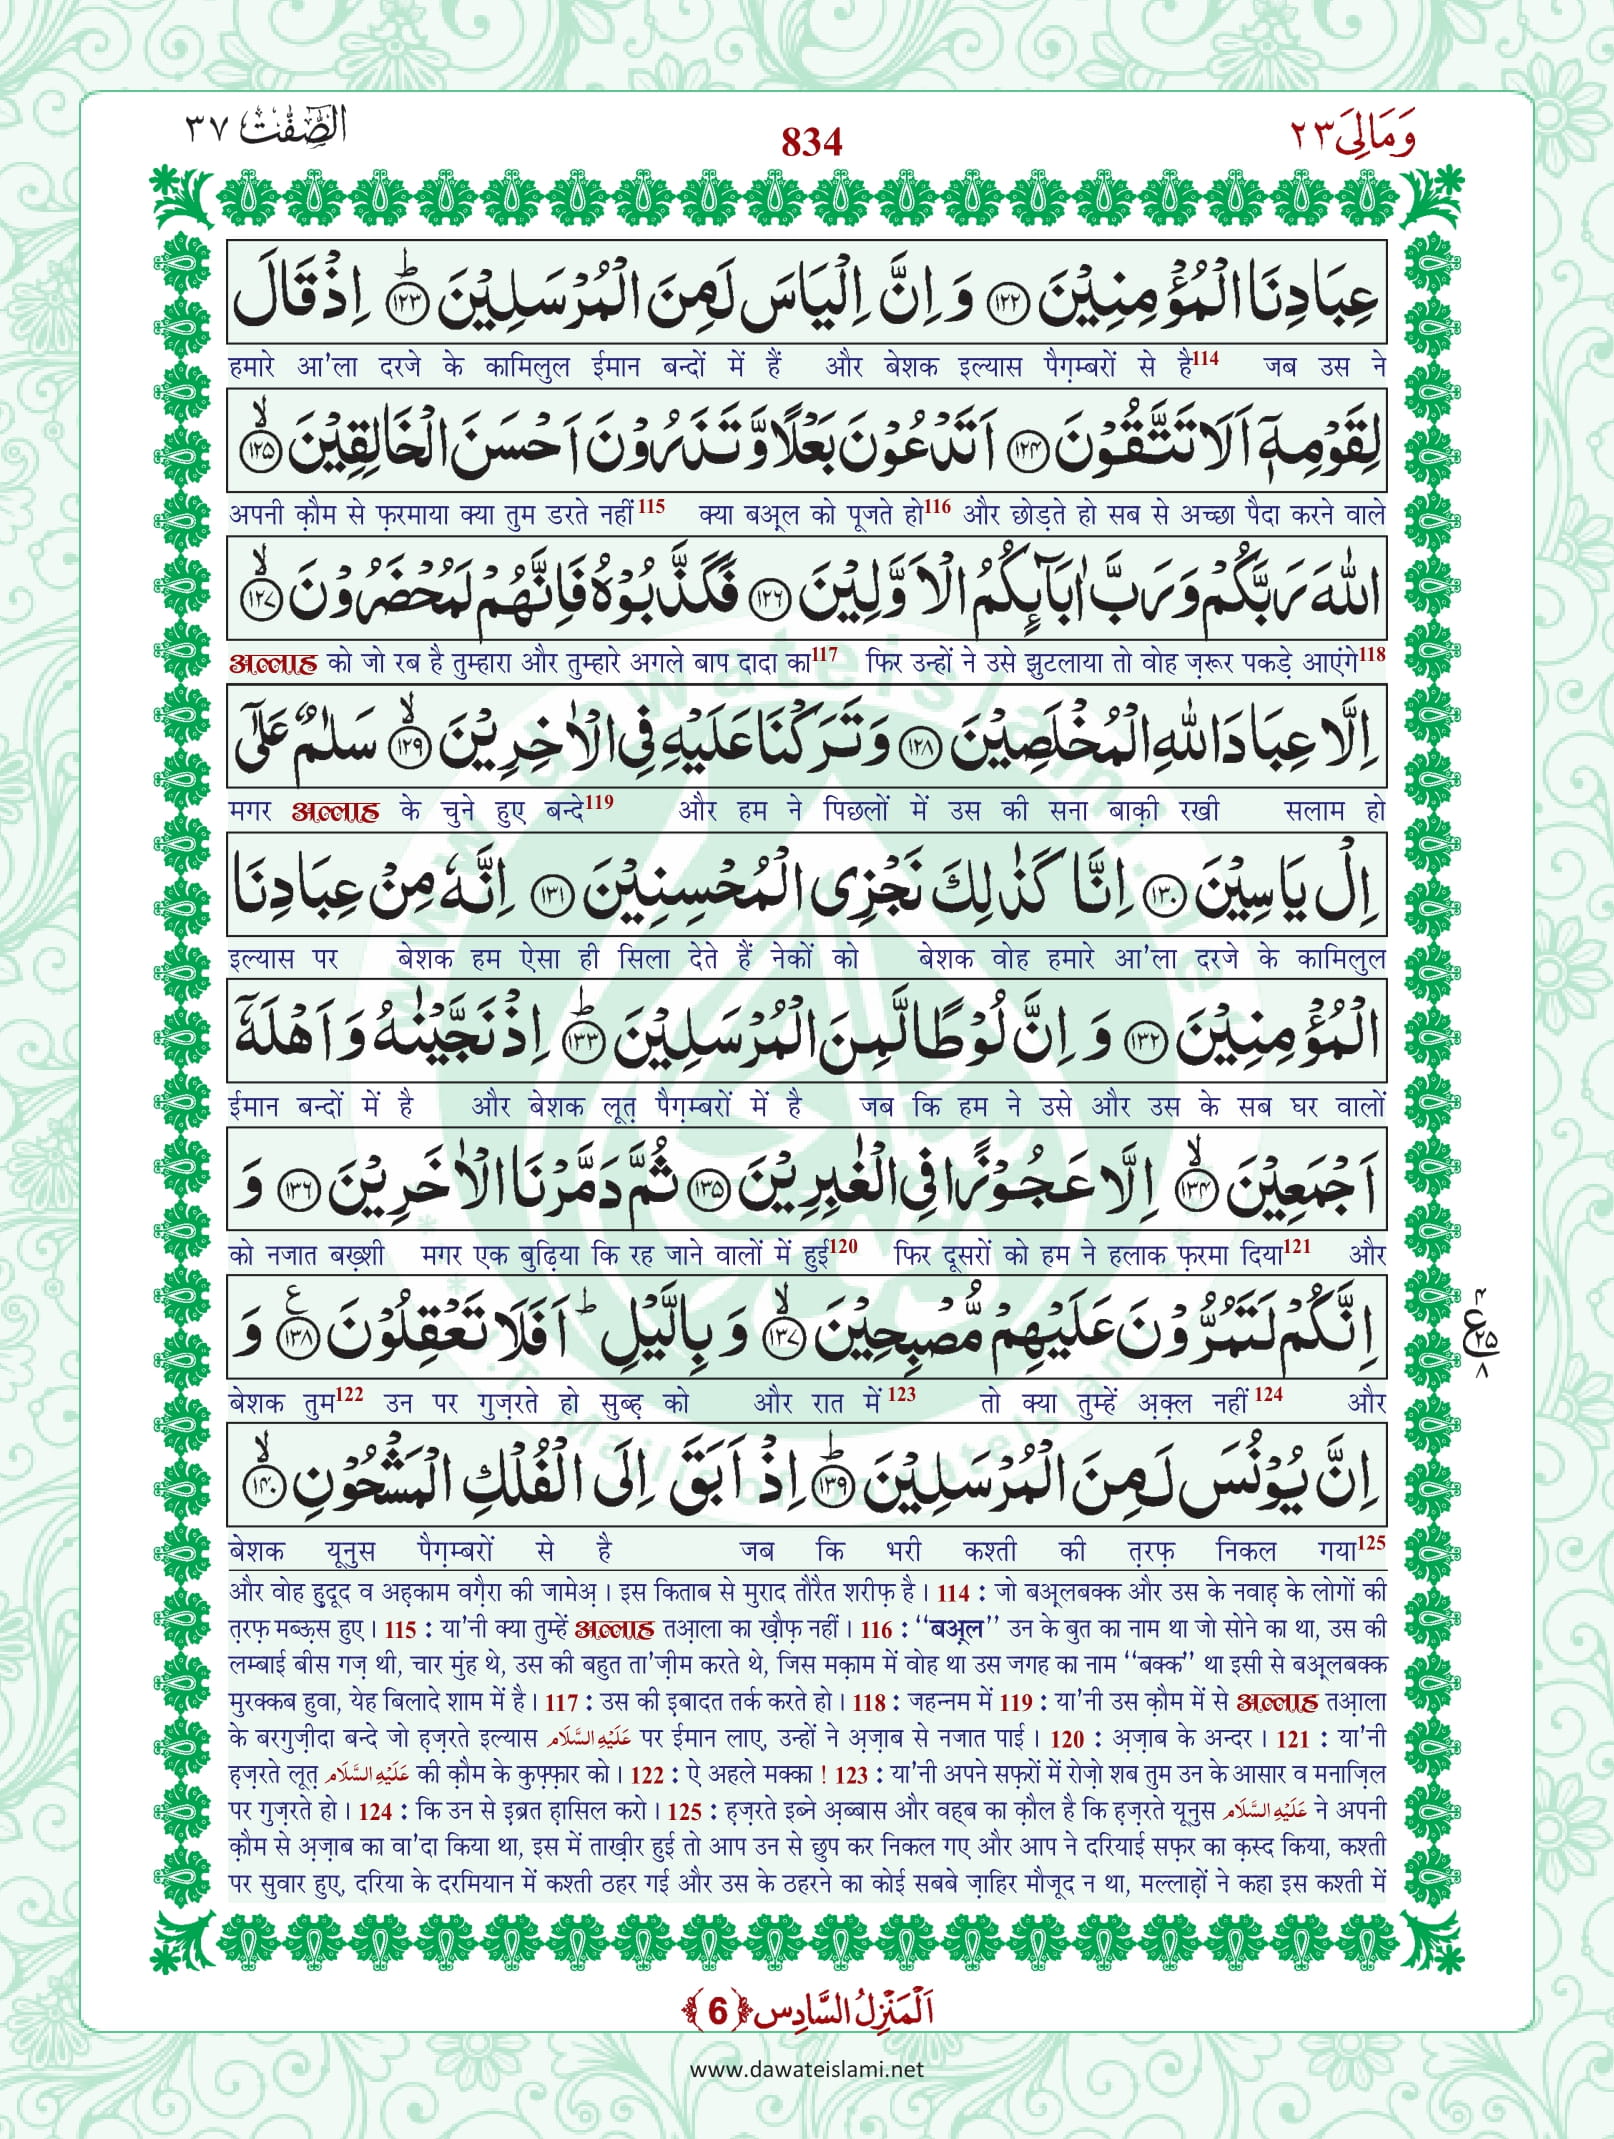 وَمَالِیَ ٢٣
834
الصّٰٓفّٰت ٣٧
عِبَادِنَا الْمُؤْمِنِیْنَ ﴿۱۲۲﴾ وَ اِنَّ اِلْیَاسَ لَمِنَ الْمُرْسَلِیْنَ ﴿۱۲۳﴾ؕ اِذْ قَالَ
हमारे आ'ला दरजे के कामिलुल ईमान बन्दों में हैं और बेशक इल्यास पैग़म्बरों से है114 जब उस ने
لِقَوْمِهٖۤ اَلَا تَتَّقُوْنَ ﴿۱۲۴﴾ اَتَدْعُوْنَ بَعْلًا وَّ تَذَرُوْنَ اَحْسَنَ الْخَالِقِیْنَ ﴿۱۲۵﴾ۙ
अपनी क़ौम से फ़रमाया क्या तुम डरते नहीं115 क्या बअ़्ल को पूजते हो116 और छोड़ते हो सब से अच्छा पैदा करने वाले
اللّٰهَ رَبَّكُمْ وَ رَبَّ اٰبَآىٕكُمُ الْاَوَّلِیْنَ ﴿۱۲۶﴾ فَكَذَّبُوْهُ فَاِنَّهُمْ لَمُحْضَرُوْنَ ﴿۱۲۷﴾ۙ
अल्लाह को जो रब है तुम्हारा और तुम्हारे अगले बाप दादा का117 फिर उन्हों ने उसे झुटलाया तो वोह ज़रूर पकड़े आएंगे118
اِلَّا عِبَادَ اللّٰهِ الْمُخْلَصِیْنَ ﴿۱۲۸﴾ وَ تَرَكْنَا عَلَیْهِ فِی الْاٰخِرِیْنَ ﴿۱۲۹﴾ۙ سَلٰمٌ عَلٰۤی
मगर अल्लाह के चुने हुए बन्दे119 और हम ने पिछलों में उस की सना बाक़ी रखी सलाम हो
اِلْ یَاسِیْنَ ﴿۱۳۰﴾ اِنَّا كَذٰلِكَ نَجْزِی الْمُحْسِنِیْنَ ﴿۱۳۱﴾ اِنَّهٗ مِنْ عِبَادِنَا
इल्यास पर बेशक हम ऐसा ही सिला देते हैं नेकों को बेशक वोह हमारे आ'ला दरजे के कामिलुल
الْمُؤْمِنِیْنَ ﴿۱۳۲﴾ وَ اِنَّ لُوْطًا لَّمِنَ الْمُرْسَلِیْنَ ﴿۱۳۳﴾ؕ اِذْ نَجَّیْنٰهُ وَ اَهْلَهٗۤ
ईमान बन्दों में है और बेशक लूत़ पैग़म्बरों में है जब कि हम ने उसे और उस के सब घर वालों
اَجْمَعِیْنَ ﴿۱۳۴﴾ۙ اِلَّا عَجُوْزًا فِی الْغٰبِرِیْنَ ﴿۱۳۵﴾ ثُمَّ دَمَّرْنَا الْاٰخَرِیْنَ ﴿۱۳۶﴾ وَ
को नजात बख़्शी मगर एक बुढ़िया कि रह जाने वालों में हुई120 फिर दूसरों को हम ने हलाक फ़रमा दिया121 और
اِنَّكُمْ لَتَمُرُّوْنَ عَلَیْهِمْ مُّصْبِحِیْنَ ﴿۱۳۷﴾ۙ وَ بِالَّیْلِؕ اَفَلَا تَعْقِلُوْنَ ﴿۱۳۸﴾ۧ وَ
बेशक तुम122 उन पर गुज़रते हो सुब्ह़ को और रात में123 तो क्या तुम्हें अ़क़्ल नहीं124 और
اِنَّ یُوْنُسَ لَمِنَ الْمُرْسَلِیْنَ ﴿۱۳۹﴾ؕ اِذْ اَبَقَ اِلَی الْفُلْكِ الْمَشْحُوْنِ ﴿۱۴۰﴾ۙ
बेशक यूनुस पैग़म्बरों से है जब कि भरी कश्ती की त़रफ़ निकल गया125
और वोह ह़ुदूद व अह़काम वग़ैरा की जामेअ़ । इस किताब से मुराद तौरैत शरीफ़ है । 114 : जो बअ़्लबक्क और उस के नवाह़ के लोगों की
त़रफ़ मब्ऊ़स हुए । 115 : या'नी क्या तुम्हें अल्लाह तआ़ला का ख़ौफ़ नहीं । 116 : ‘‘बअ़्ल’’ उन के बुत का नाम था जो सोने का था, उस की
लम्बाई बीस गज़ थी, चार मुंह थे, उस की बहुत ता'ज़ीम करते थे, जिस मक़ाम में वोह था उस जगह का नाम ‘‘बक्क’’ था इसी से बअ़्लबक्क
मुरक्कब हुवा, येह बिलादे शाम में है । 117 : उस की इ़बादत तर्क करते हो । 118 : जहन्नम में 119 : या'नी उस क़ौम में से अल्लाह तआ़ला
के बरगुज़ीदा बन्दे जो ह़ज़रते इल्यास عَلَيْهِ السَّلَام पर ईमान लाए, उन्हों ने अ़ज़ाब से नजात पाई । 120 : अ़ज़ाब के अन्दर । 121 : या'नी
ह़ज़रते लूत़ عَلَيْهِ السَّلَام की क़ौम के कुफ़्फ़ार को । 122 : ऐ अहले मक्का ! 123 : या'नी अपने सफ़रों में रोज़ो शब तुम उन के आसार व मनाज़िल
पर गुज़रते हो । 124 : कि उन से इ़ब्रत ह़ासिल करो । 125 : ह़ज़रते इब्ने अ़ब्बास और वह्ब का क़ौल है कि ह़ज़रते यूनुस عَلَيْهِ السَّلَام ने अपनी
क़ौम से अ़ज़ाब का वा'दा किया था, इस में ताख़ीर हुई तो आप उन से छुप कर निकल गए और आप ने दरियाई सफ़र का क़स्द किया, कश्ती
पर सुवार हुए, दरिया के दरमियान में कश्ती ठहर गई और उस के ठहरने का कोई सबबे ज़ाहिर मौजूद न था, मल्लाह़ों ने कहा इस कश्ती में
اَلْمَنْزِلُ السَّادِس ﴿6﴾
www.dawateislami.net